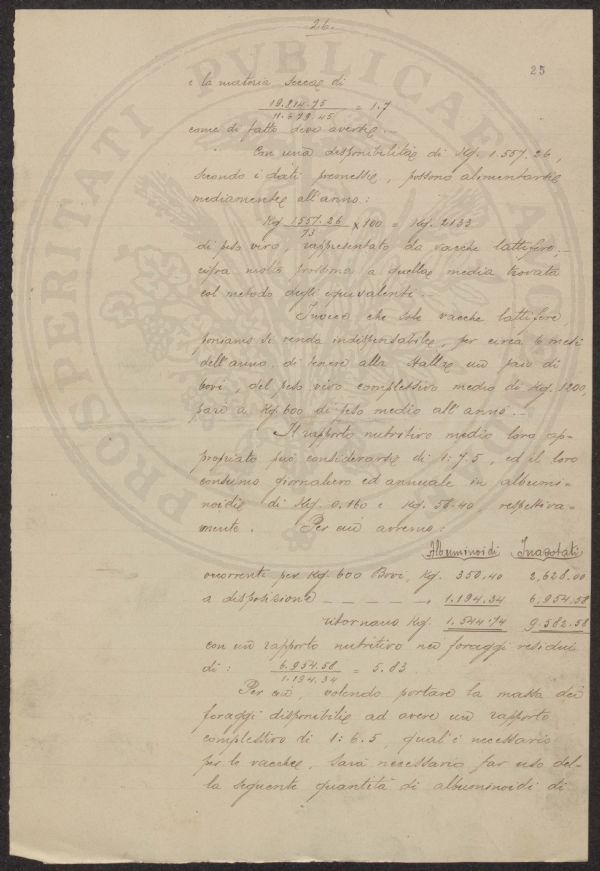 26.
25
e la materia secca di
19.814.75 / 11.679.45 = 1.7
come di fatto deve aversi. —
Con una disponibilità di Kg. 1.557.26,
secondo i dati premessi, possono alimentarsi
mediamente all'anno:
Kg 1557.26 / 73 × 100 = Kg. 2133
di peso vivo, rappresentato da vacche lattifere,
cifra molto prossima a quella media trovata
col metodo degli equivalenti.
Invece che sole vacche lattifere
poniamo si renda indispensabile, per circa 6 mesi
dell'anno, di tenere alla stalla un paio di
bovi, del peso vivo complessivo medio di Kg. 1200,
pari a Kg 600 di peso medio all'anno. —
Il rapporto nutritivo medio loro ap-
propriato può considerarsi di 1:7.5, ed il loro
consumo giornaliero ed annuale in albumi-
noidi di Kg. 0.160 e Kg. 58.40, rispettiva-
mente. Per cui avremo:
Albuminoidi Inazotati
occorrenti per Kg. 600 Bovi, Kg. 350.40 2,628.00
a disposizione — — — — 1.194.34 6,954.58
ritornano Kg. 1,544.74 9.582.58
con un rapporto nutritivo nei foraggi residui
di: 6.954.58 / 1.194.34 = 5.83.
Per cui, volendo portare la massa dei
foraggi disponibili ad avere un rapporto
complessivo di 1:6.5, qual'è necessario
per le vacche, sarà necessario far uso del-
la seguente quantità di albuminoidi di
PROSPERITATI PVBLICAE